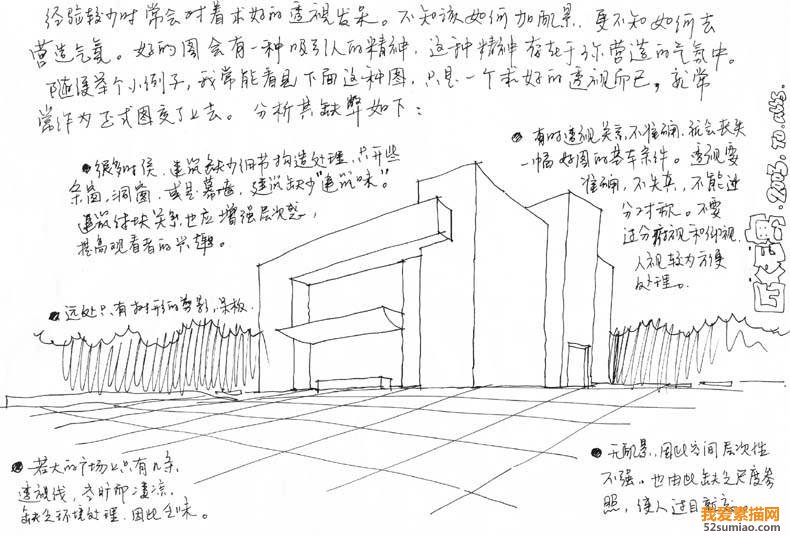 经验较少时常会对着求好的透视发呆。不知该如何加配景,更不知如何去
营造气氛。好的图会有一种吸引人的精神,这种精神存在于你营造的气氛中。
随便举个小例子,我常能看见下面这种图,只是一个求好的透视而已,就常
常作为正式图交了上去。分析其缺弊如下:
很多时候,建筑缺少细节构造处理,只开些
条窗,洞窗,或是幕墙,建筑缺少“建筑味”。
建筑体块关系也应增强层次感,
提高观看者的兴趣。
有时透视关系不准确,就会丧失
一幅好图的基本条件。透视要
准确,不失真,不能过
分对称。不要
过分俯视和仰视,
人视较为方便
处理。
远处只有树形的剪影,呆板.
若大的广场上只有几条
透视线,空旷而凄凉,
缺乏环境处理,因此乏味。
无配景,因此空间层次性
不强。也由此缺乏尺度参
照,使人过目
2003.10.
我爱素描网
52sumiao.com